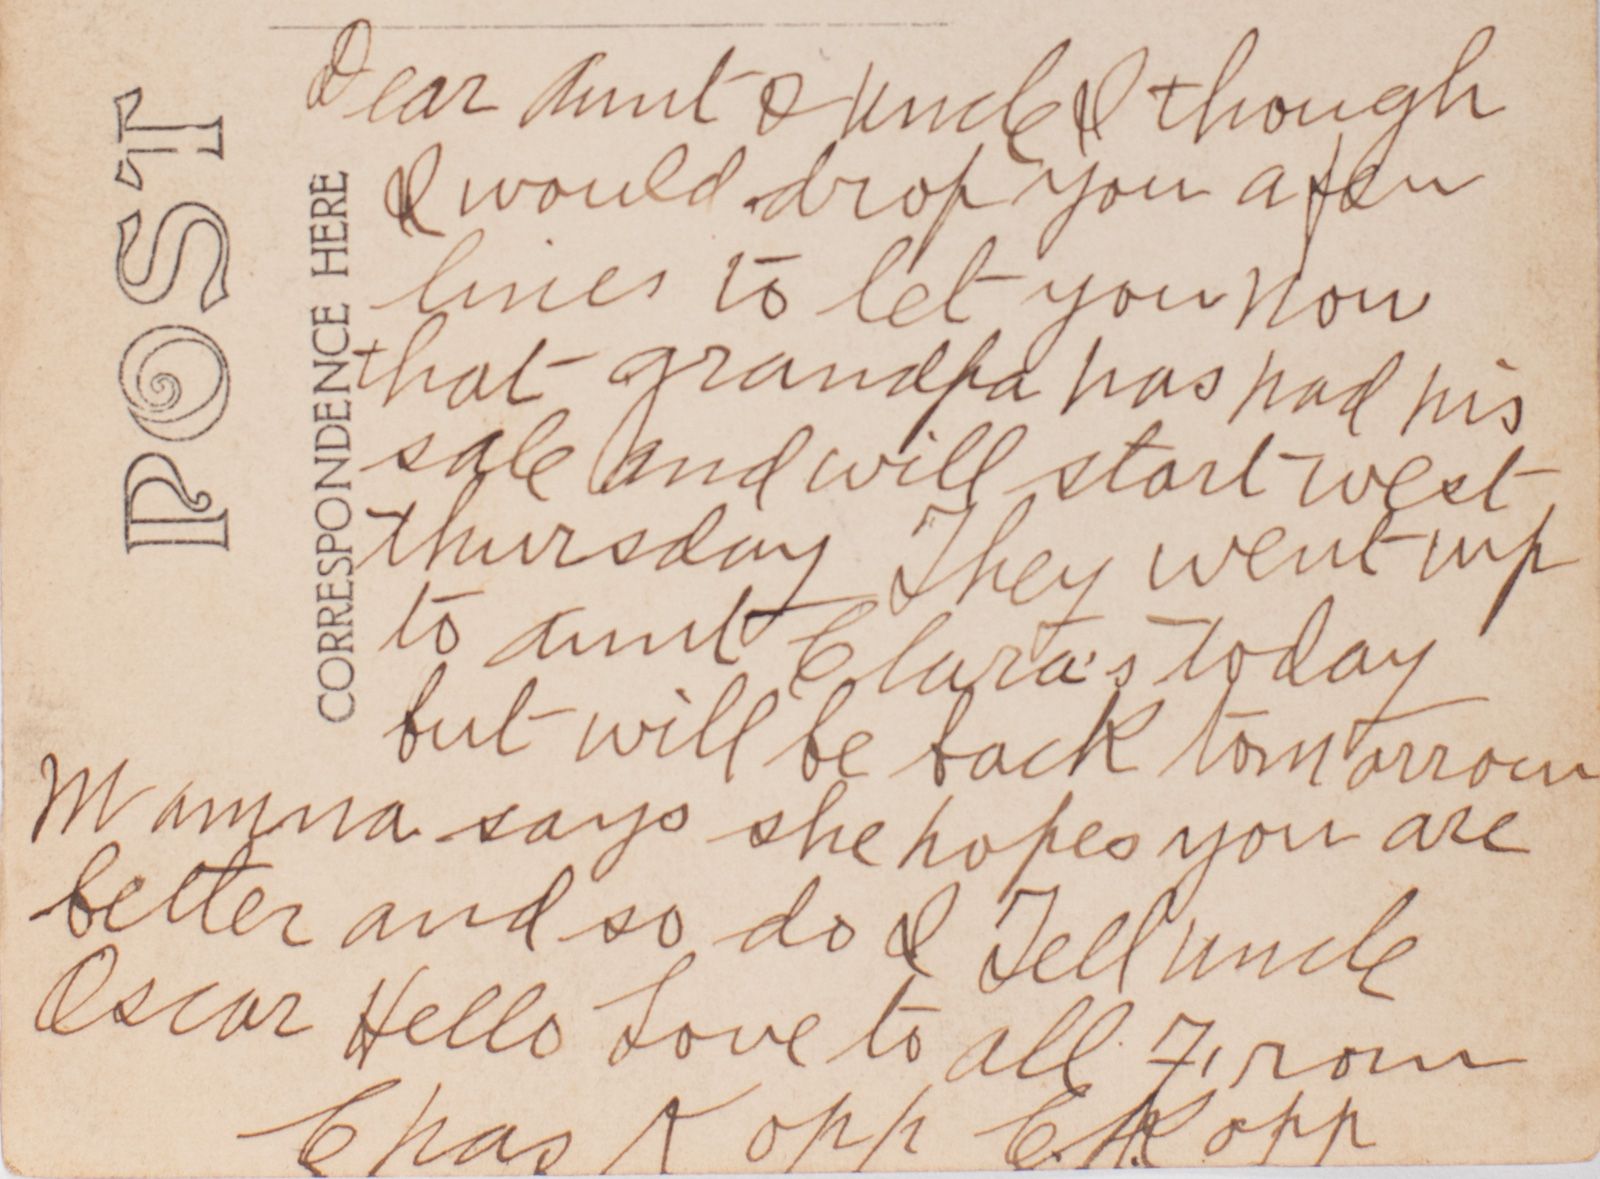 POST
CORRESPONDENCE HERE
Dear Aunt & Uncle I though
I would drop you a few
lines to let you now
that grandpa has had his
sale and will start west
thursday They went up
to Aunt Clara's today
but will be back tomorrow
Mamma says she hopes you are
better and so do I Tell uncle
Oscar Hello Love to all From
Chas Kopp C.K. Kopp